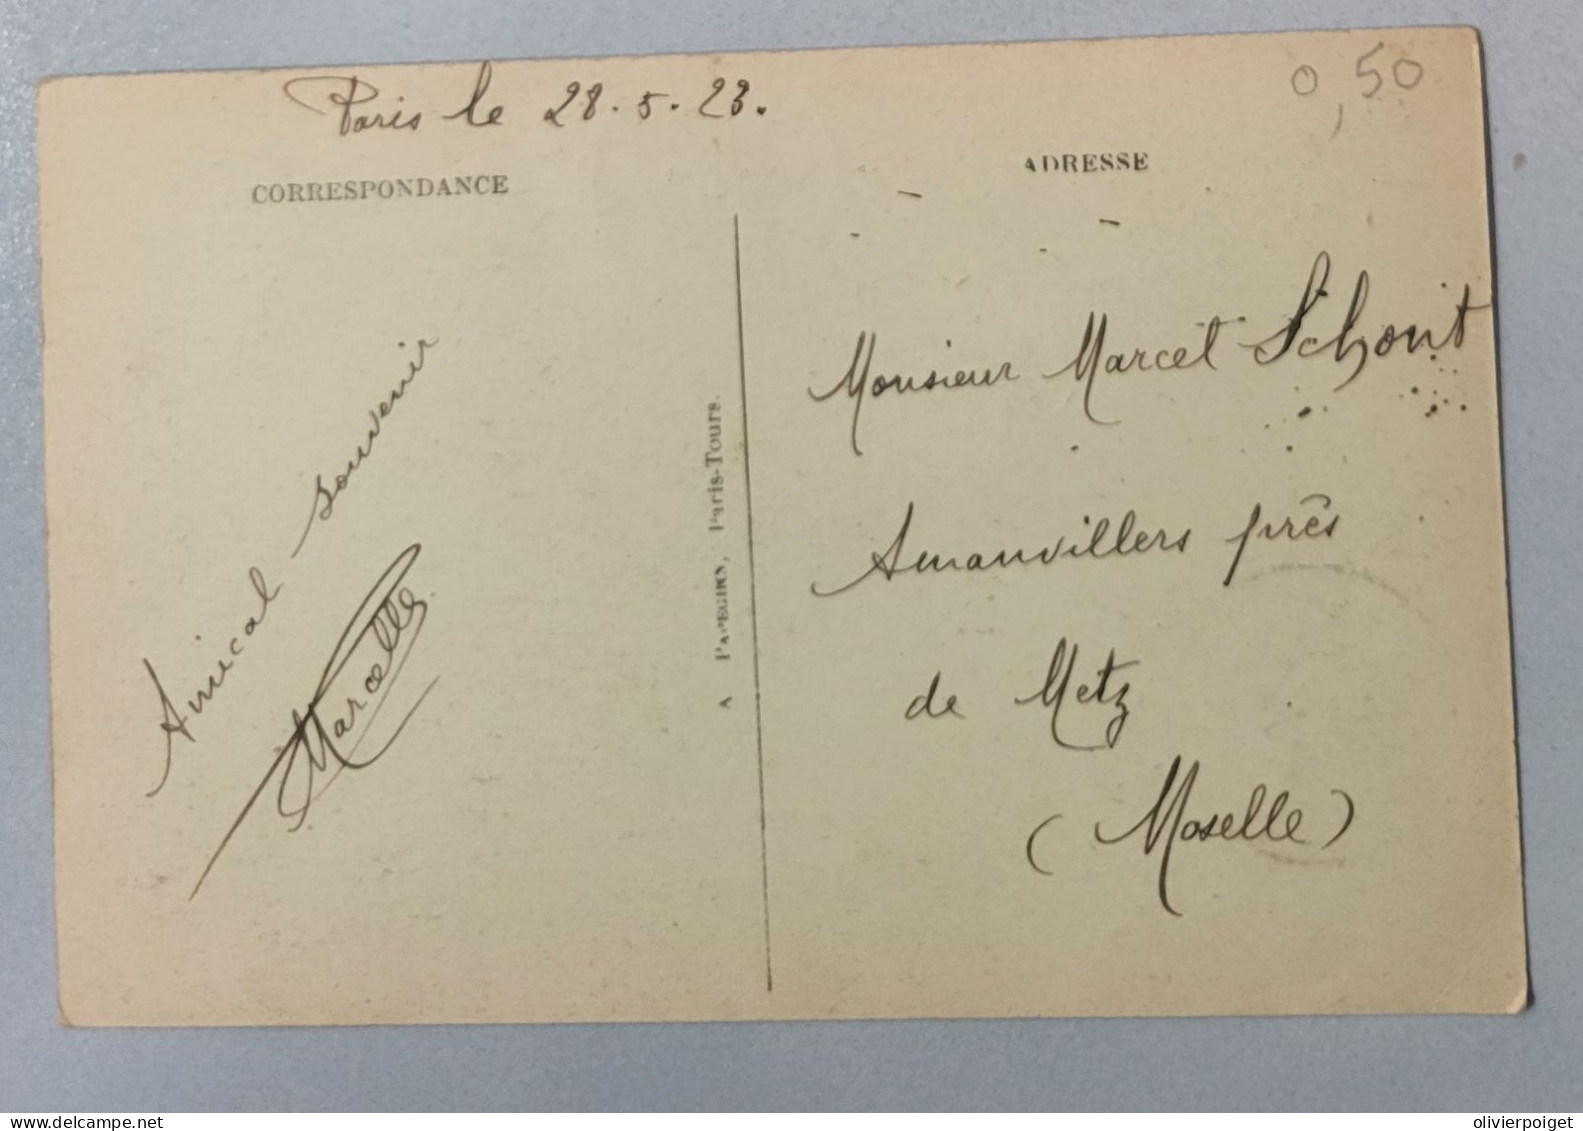 Paris le 28.5.23.
0,50
CORRESPONDANCE
ADRESSE
Amical souvenir
Marcelle
A PAPEGHIN, Paris-Tours.
Monsieur Marcel Schont
Amanvillers près
de Metz
(Moselle)
www.delcampe.net
olivierpoiget